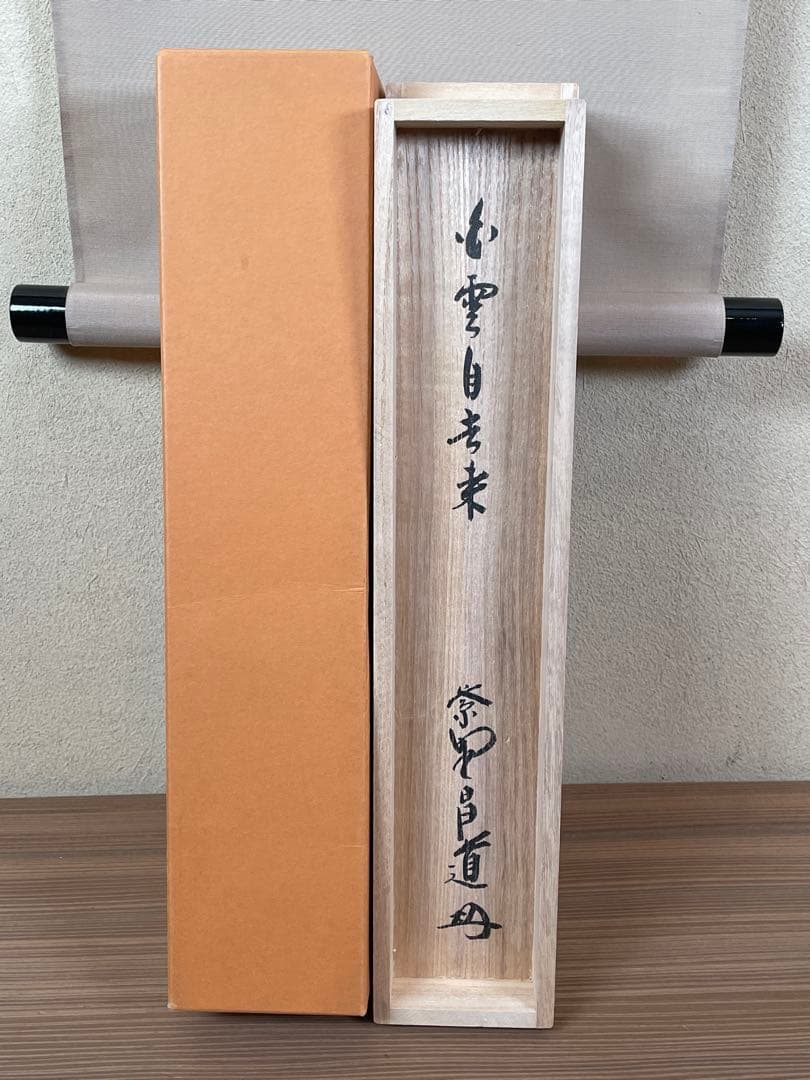 白雲自去来
紫野 昌道